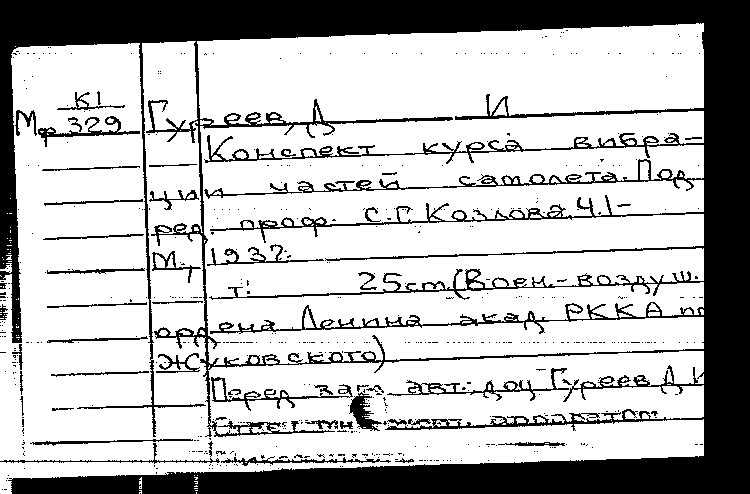 К1
Мф 329 Гуреев, Д И
Конспект курса вибра-
ции частей самолета. Под
ред. проф. С.Г. Козлова. Ч.1-
М., 1937.
т. 25cm. (Воен.-воздуш.
ордена Ленина акад. РККА
Жуковского)
Перед загл. авт.: доц Гуреев Д И
аппаратом.